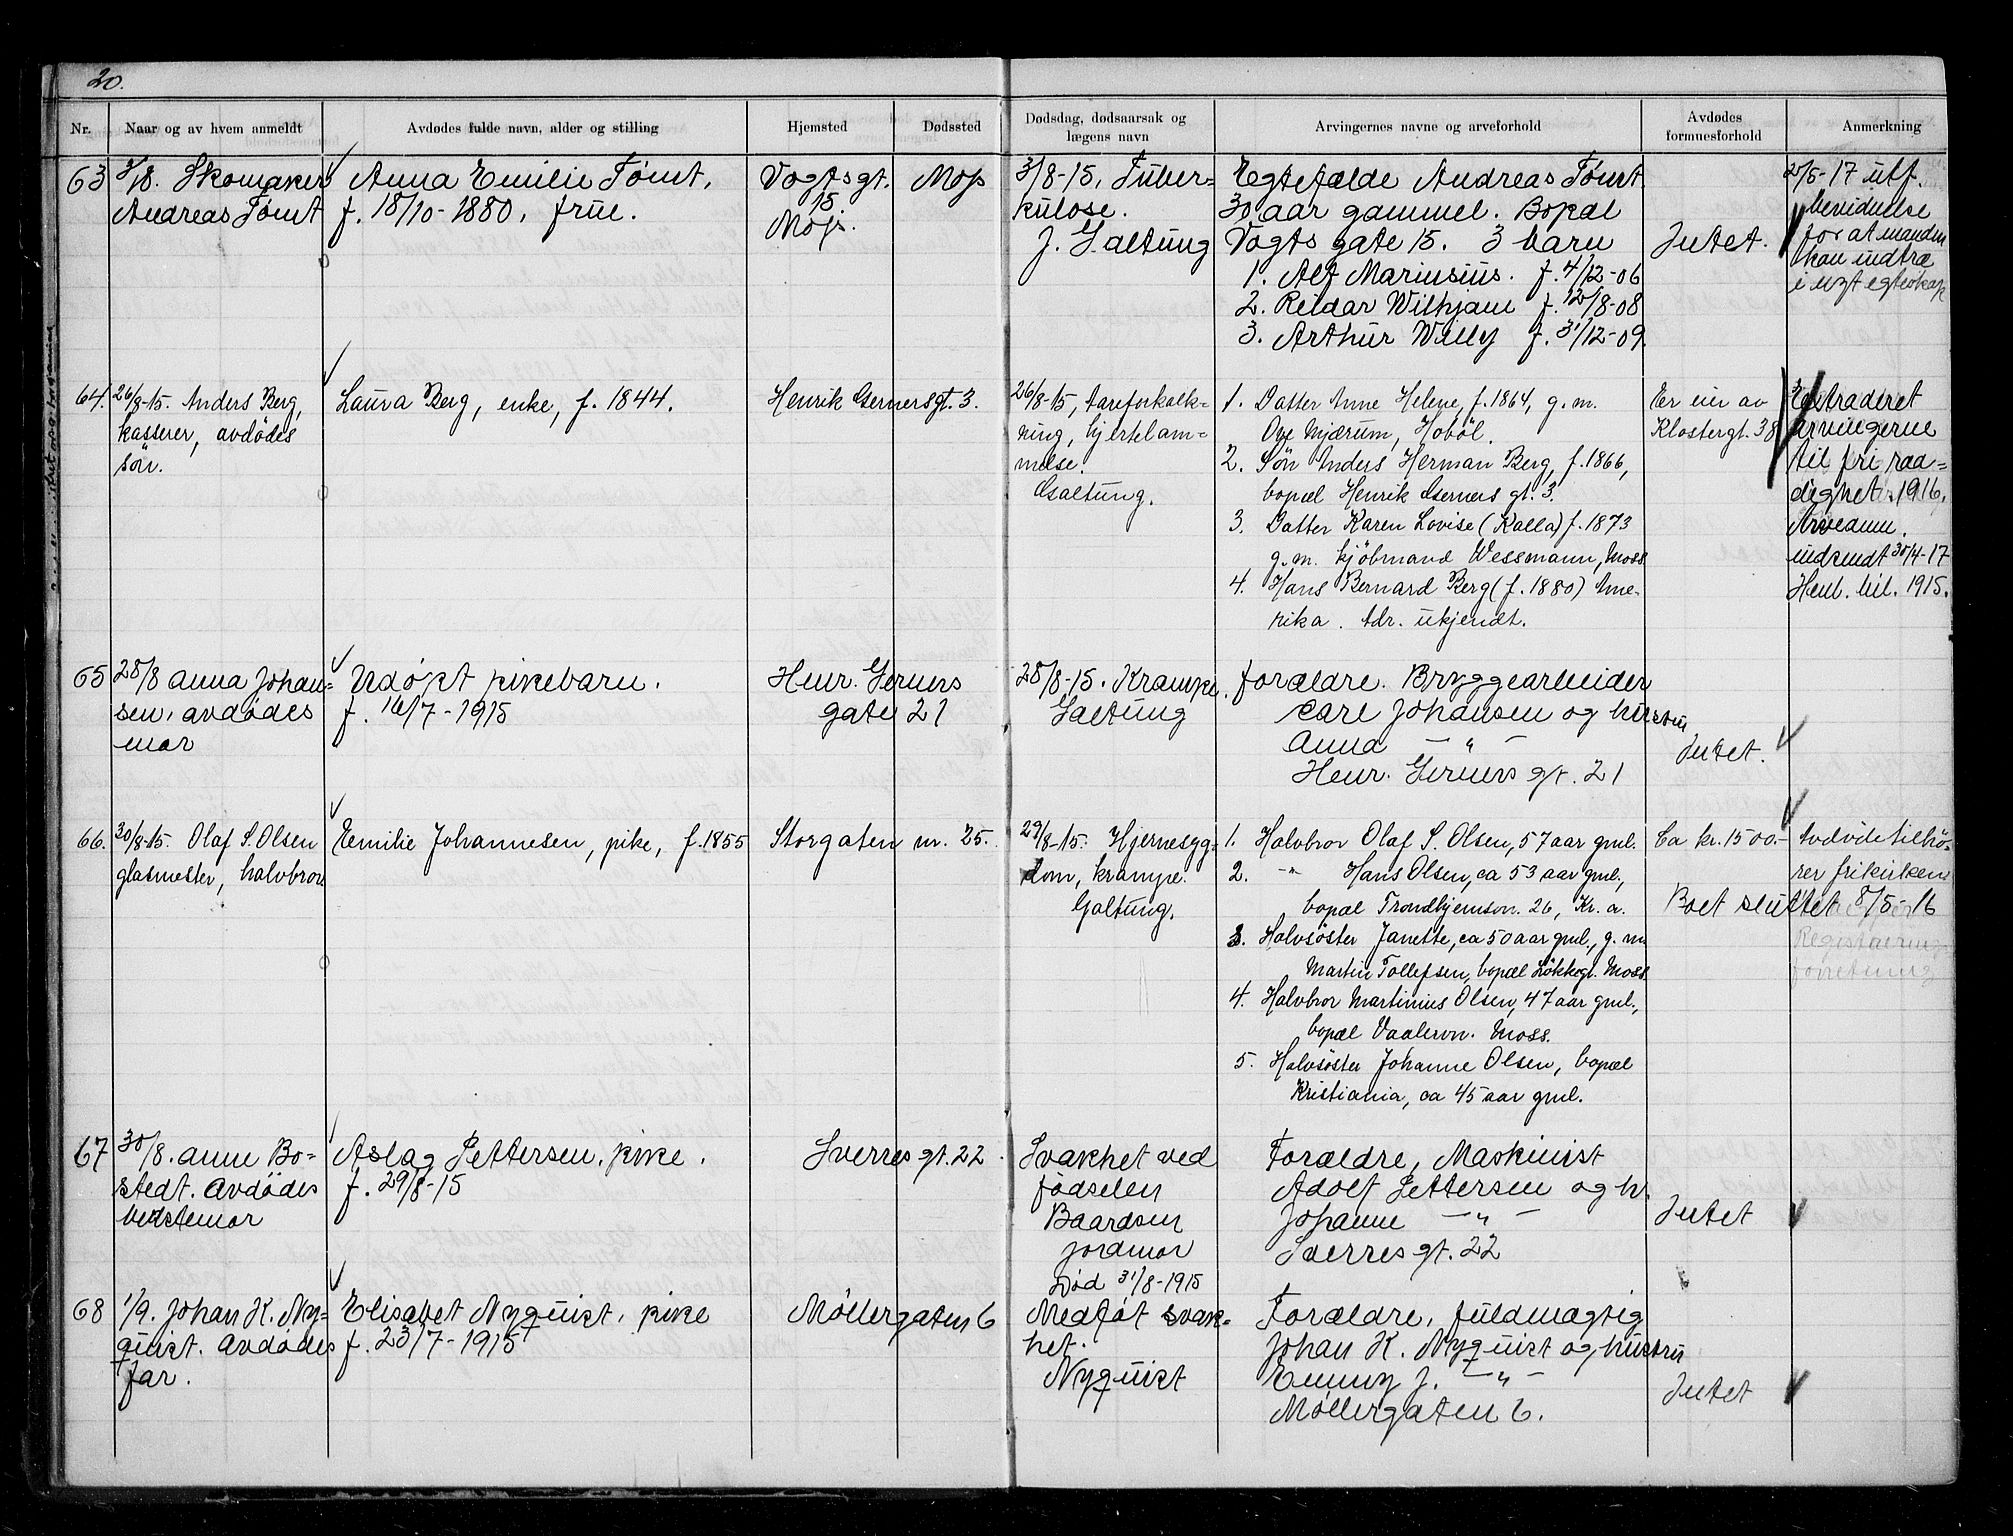 20.
Nr.
Naar og av hvem anmeldt
Avdødes fulde navn, alder og stilling
Hjemsted
Dødssted
Dødsdag, dødsaarsak og
lægens navn
Arvingernes navne og arveforhold
Avdødes
formuesforhold
Anmerkning
63
3/8. Skomaker
Andreas Tømt
Anna Emilie Tømt,
f. 18/10-1880, frue.
Vogtsgt.
15
Moss.
Moss
3/8-15, Tuber-
kulose.
J. Galtung
Egtefælde Andreas Tømt
30 aar gammel. Bopæl
Vogts gate 15. 3 barn
1. Alf Marinsius. f. 4/12-06
2. Reidar Wilhjam f. 12/8-08
3. Arthur Willy f. 31/12-09.
Intet.
2/5-17 utf.
bevidnelse
for at manden
kan indtræ
i nyt egteskap
64.
26/8-15. Anders Berg,
kasserer, avdødes
søn.
Laura Berg, enke, f. 1844.
Henrik Gernersgt. 3.
26/8-15, aareforkalk-
ning, hjertelam-
melse.
Galtung.
1. Datter Anne Helene, f. 1864, g. m.
Ove Mjærum, Hobøl.
2. Søn Anders Herman Berg, f. 1866,
bopæl Henrik Gerners gt. 3.
3. Datter Karen Lovise (Kalla) f. 1873
g. m. kjöbmand Wessmann, Moss
4. Hans Bernard Berg (f. 1880) Ame-
rika. Adr. ukjendt.
Er eier av
Klostergt. 38
Extraderet
arvingerne
til fri raa-
dighet 1916.
Arveanm.
indsendt 30/4-17
Henl. til. 1915.
65
28/8 Anna Johan-
sen, avdødes
mor
Udøpt pikebarn.
f. 16/7-1915
Henr. Gerners
gate 21
28/8-15. Krampe.
Galtung
forældre. Bryggearbeider
Carl Johansen og hustru
Anna — " —
Henr. Gerners gt. 21
Intet.
66.
30/8-15. Olaf S. Olsen
glasmester, halvbror
Emilie Johannesen, pike, f. 1855
Storgaten nr. 25.
29/8-15. Hjernesyg-
dom, krampe.
Galtung.
1. Halvbror Olaf S. Olsen, 57 aar gml.
2. -"- Hans Olsen, ca 53 aar gml.,
bopæl Trondhjemsvn. 26, Kr. a.
3. Halvsöster Janette, ca 50 aar gml., g. m.
Martin Tollefsen, bopæl Løkkegt. Moss.
4. Halvbror Martinius Olsen, 47 aar gml.,
bopæl Vaalervn. Moss.
5. Halvsøster Johanne Olsen, bopæl
Kristiania, ca 45 aar gml.
Ca kr. 1500.-
Avdöde tilhö-
rer frikirken
Boet sluttet 8/5-16
Registrerings
forretning
67
30/8. Anne Bo-
stedt. Avdødes
bedstemor
Aslag Pettersen, pike.
f. 29/8-15
Sverres gt. 22
Svakhet ved
fødselen
Baardsen
jordmor
Død 31/8-1915
Forældre, Maskinist
Adolf Pettersen og h.
Johanne — " —
Sverres gt. 22
Intet
68
1/9. Johan K. Ny-
quist. Avdødes
far.
Elisabet Nyquist, pike
f. 23/7-1915
Møllergaten 6
Medføt svak-
het.
Nyquist
Forældre, fuldmægtig
Johan K. Nyquist og hustru
Emmy J. — " —
Møllergaten 6.
Intet